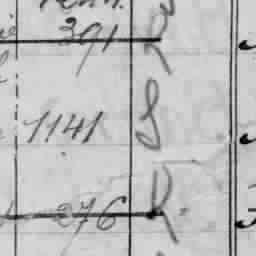 391 R
1141 S
276 R.